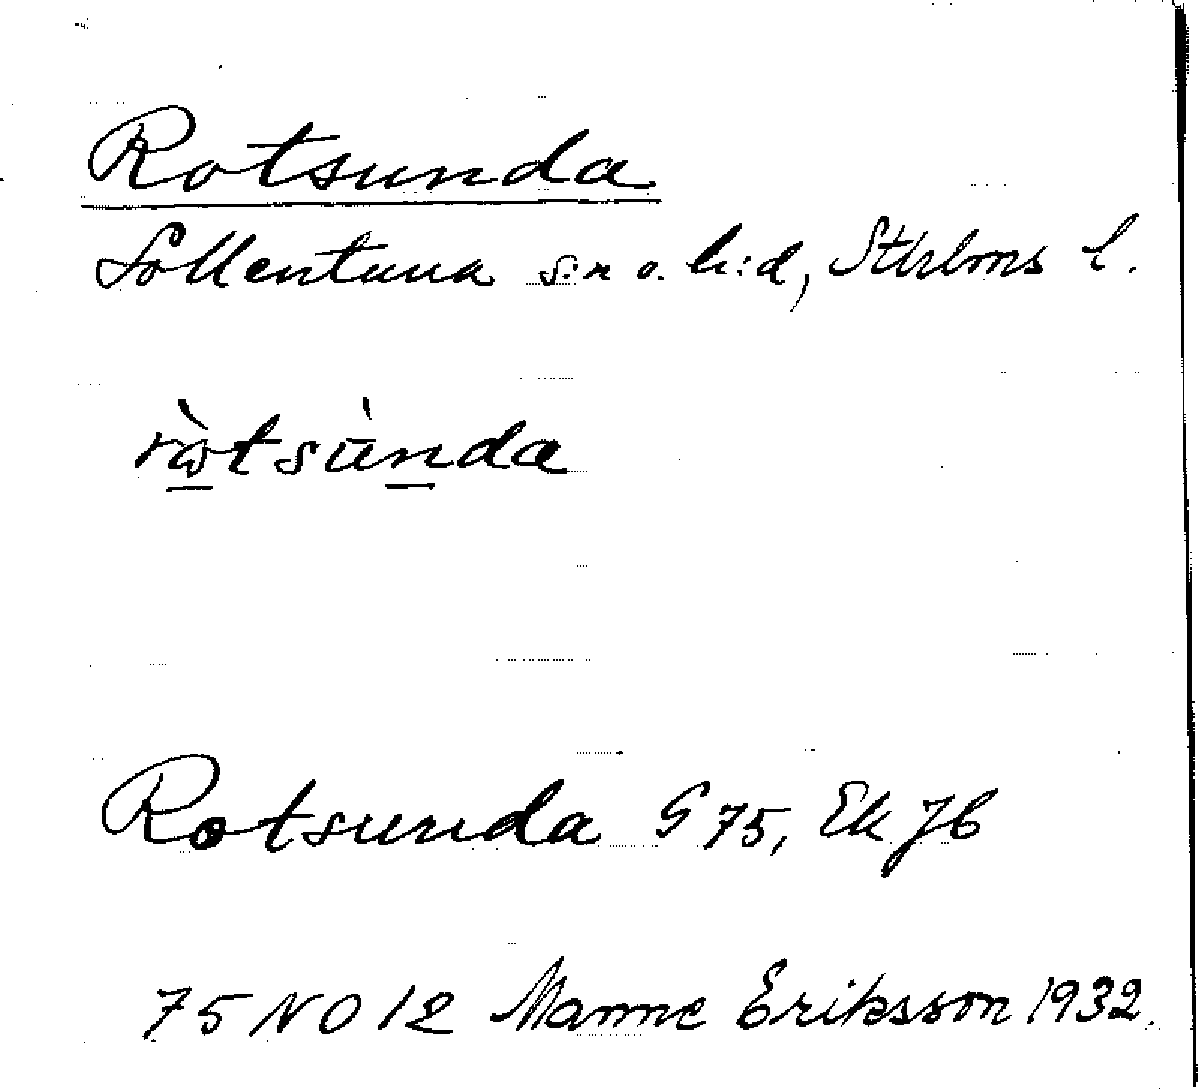 Rotsunda
Sollentuna s:n o. h:d, Sthlms l.
ròtsùnda
Rotsunda G 75, Ek 76
75 NO 12 Manne Eriksson 1932.